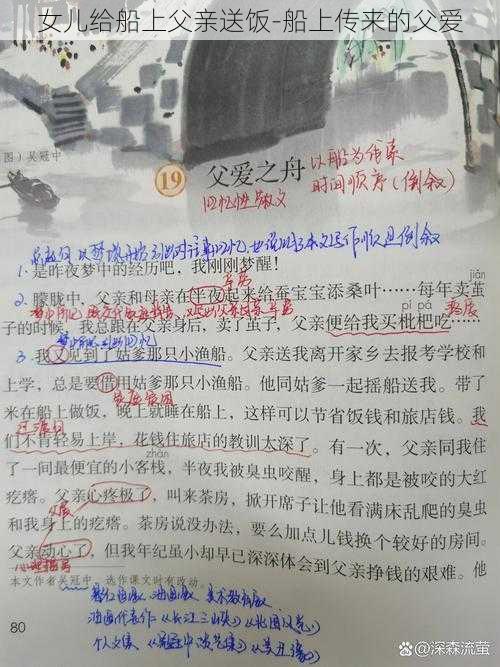 女儿给船上父亲送饭-船上传来的父爱
图）吴冠中
19 父爱之舟
以船为线索
时间顺序（倒叙）
回忆性散文
1.是昨夜梦中的经历吧，我刚刚梦醒！
2.朦胧中，父亲和母亲在半夜起来给蚕宝宝添桑叶……每年卖茧
pí pá
子的时候，我总跟在父亲身后，卖了茧子，父亲便给我买枇杷吃……
3.我又见到了姑爹那只小渔船。父亲送我离开家乡去报考学校和
上学，总是要借用姑爹那只小渔船。他同姑爹一起摇船送我。带了
米在船上做饭，晚上就睡在船上，这样可以节省饭钱和旅店钱。我
过渡句
们不肯轻易上岸，花钱住旅店的教训太深了。有一次，父亲同我住
zhàn
了一间最便宜的小客栈，半夜我被臭虫咬醒，身上都是被咬的大红
疙瘩。父亲心疼极了，叫来茶房，掀开席子让他看满床乱爬的臭虫
和我身上的疙瘩。茶房说没办法，要么加点儿钱换个较好的房间。
父亲动心了，但我年纪虽小却早已深深体会到父亲挣钱的艰难。他
本文作者吴冠中，选作课文时有改动。
油画代表作《长江三峡》《北国风光》
个人文集《吴冠中谈艺集》
80
@深森流萤